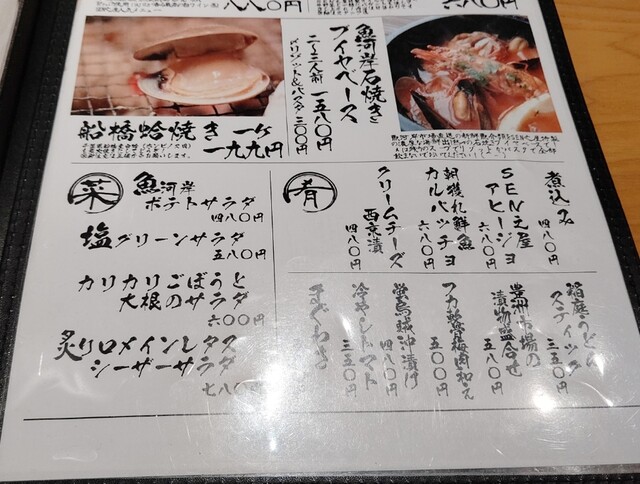 八八〇円
魚河岸石焼き
ブイヤベース
二〜三人前 一五八〇円
リゾット&パスタ 三〇〇円
船橋蛤焼き 一ヶ
一九九円
菜
魚河岸
ポテトサラダ
四八〇円
塩グリーンサラダ
五八〇円
カリカリごぼうと
大根のサラダ
六〇〇円
炙りロメインレタス
シーザーサラダ
七八〇円
肴
煮込み
四八〇円
SEN之屋
アヒージョ
六八〇円
朝獲れ鮮魚
カルパッチョ
六八〇円
クリームチーズ
西京漬
四八〇円
稲庭うどん
スティック
三五〇円
豊洲市場の
漬物盛合せ
五八〇円
フカ軟骨梅肉和え
五〇〇円
蛍烏賊沖漬け
四八〇円
冷やしトマト
三五〇円